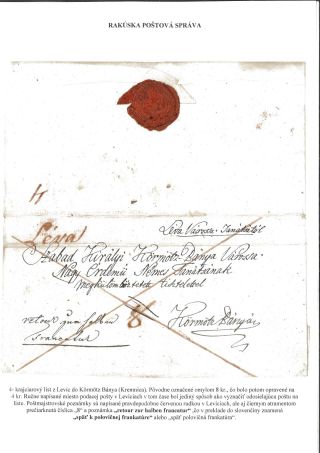 RAKÚSKA POŠTOVÁ SPRÁVA
4
Léva
Leva Városa Tanátsátol
Szabad Királyi Körmötz Bánya Városa
Nagy Érdemű Nemes Tanátsának
Megkülömböztetett tisztelettel
retour zum halben
Francatur
8
Körmötz Bányán
4- krajciarový list z Levíc do Körmötz Bánya (Kremnica), Pôvodne označené omylom 8 kr., čo bolo potom opravené na
4 kr. Ručne napísané miesto podacej pošty v Leviciach v tom čase bol jediný spôsob ako vyznačiť odosielajúcu poštu na
liste. Poštmajstrovské poznámky sú napísané pravdepodobne červenou rudkou v Leviciach, ale aj čiernym atramentom
prečiarknutá číslica „8" a poznámka „retour zur halben francatur" „čo v preklade do slovenčiny znamená
„späť k polovičnej frankatúre" alebo „späť polovičná frankatúra".